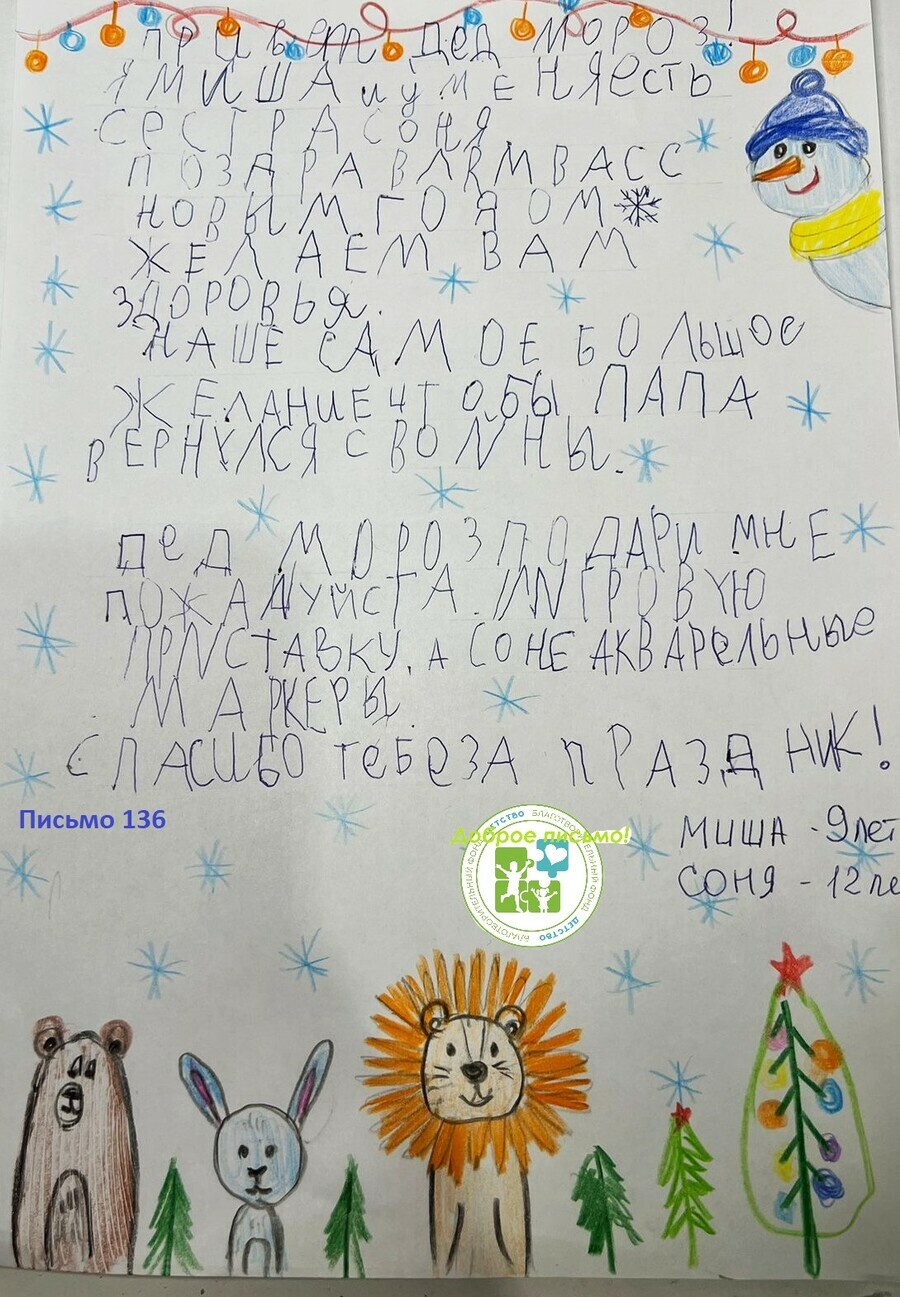 Привет Дед Мороз!
Я МИША и у МЕНЯ есть
СЕСТРА СОНЯ
ПОЗДРАВЛЯМ ВАС С
НОВЫМ ГОДОМ
ЖЕЛАЕМ ВАМ
ЗДОРОВЬЯ.
НАШЕ САМОЕ БОЛЬШОЕ
ЖЕЛАНИЕ ЧТОБЫ ПАПА
ВЕРНУЛСЯ С ВОЙНЫ.
ДЕД МОРОЗ ПОДАРИ МНЕ
ПОЖАЛУЙСТА. ИГРОВУЮ
ПРИСТАВКУ, А СОНЕ АКВАРЕЛЬНЫЕ
МАРКЕРЫ.
СПАСИБО ТЕБЕ ЗА ПРАЗДНИК!
Письмо 136
Доброе письмо!
БЛАГОТВОРИТЕЛЬНЫЙ ФОНД ДЕТСТВО
БЛАГОТВОРИТЕЛЬНЫХ ФОНД ДЕТСТВО
МИША - 9 лет
СОНЯ - 12 ле